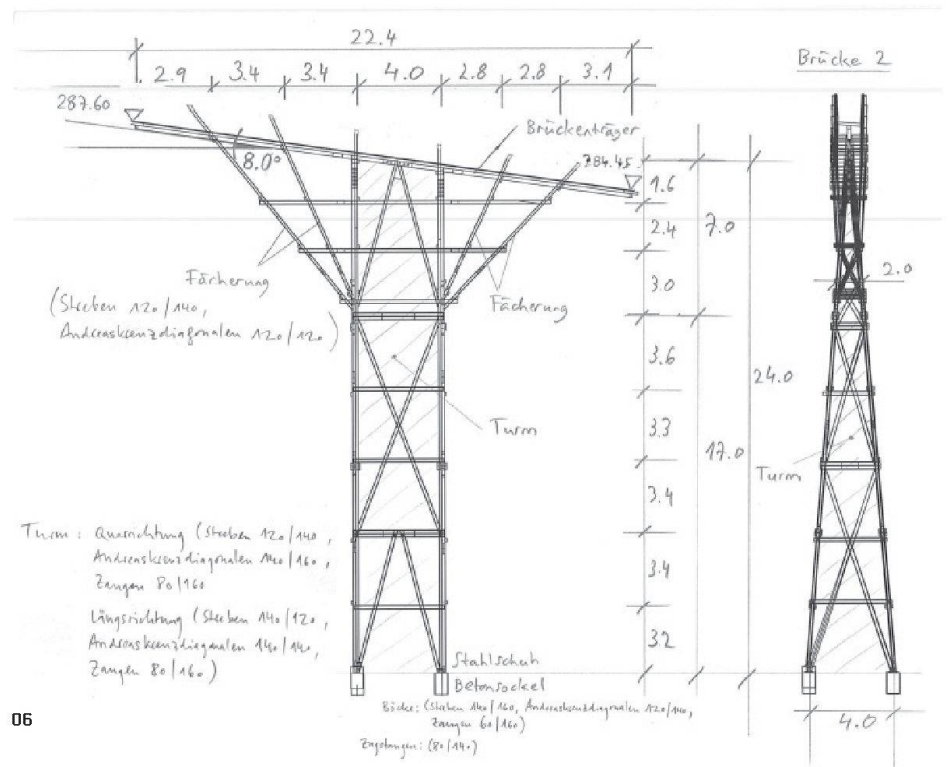 22.4
2.9 3.4 3.4 4.0 2.8 2.8 3.1
Brücke 2
287.60
Brückenträger
8.0°
284.45
1.6
2.4
7.0
3.0
2.0
Fächerung
Fächerung
(Streben 120/140,
Andreaskreuzdiagonalen 120/120)
3.6
24.0
Turm
3.3
17.0
Turm
3.4
Turm: Querrichtung (Streben 120/140,
Andreaskreuzdiagonalen 140/160,
Zangen 80/160
3.4
Längsrichtung (Streben 140/120,
Andreaskreuzdiagonalen 140/140,
Zangen 80/160)
3.2
Stahlschuh
Betonsockel
Böcke: (Streben 140/160, Andreaskreuzdiagonalen 120/140,
Zangen 60/160)
Zugstangen: (80/140)
4.0
06